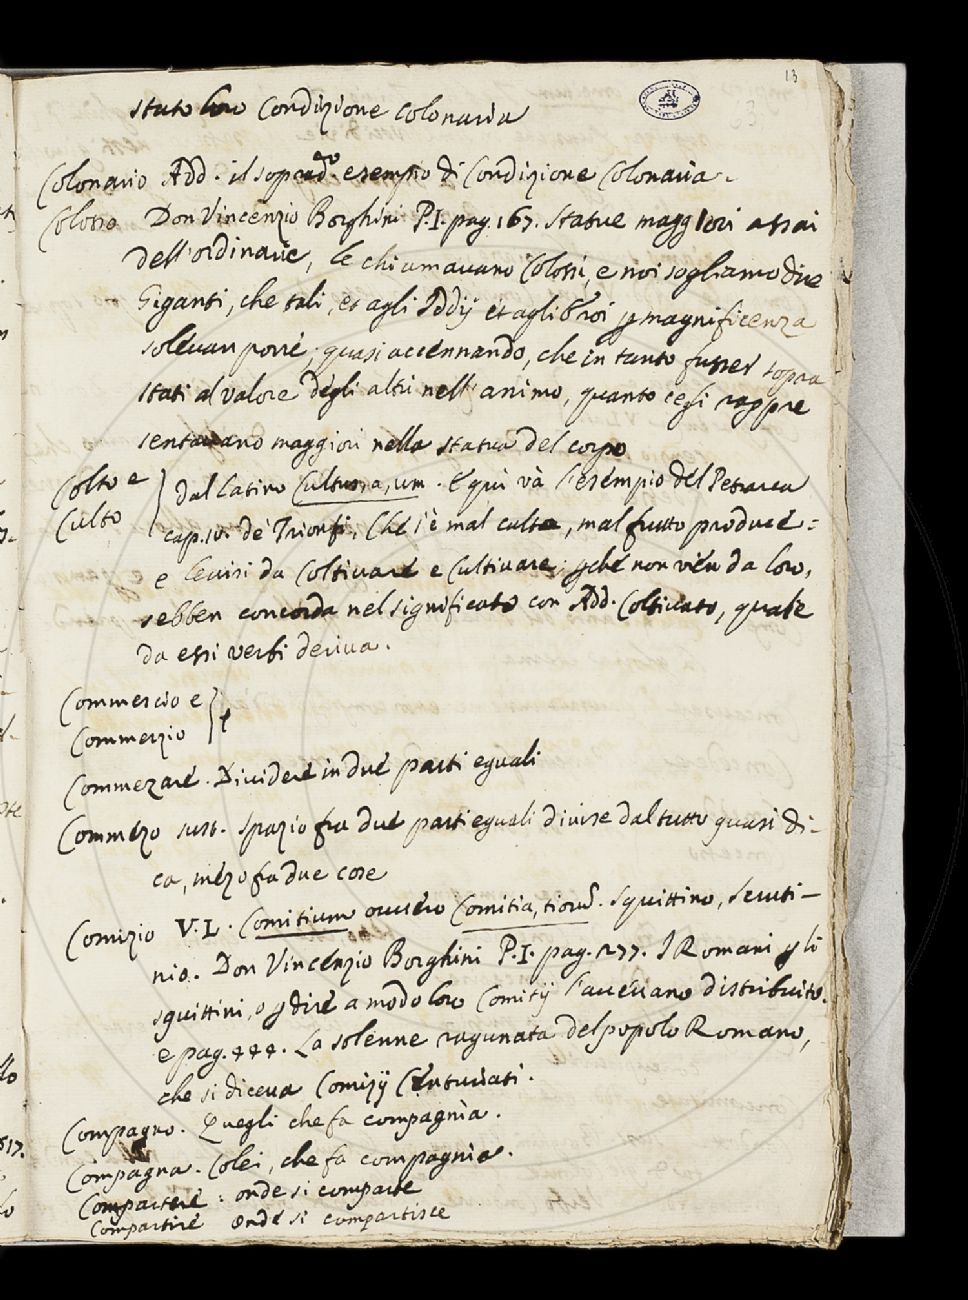 13
63
stato loro condizione colonaria
Colonario Add. il sopradº. esempio di Condizione Colonaria.
Colosso Don Vincenzio Borghini P. I. pag. 167. Statue maggiori assai
dell'ordinarie, le chiamavano Colossi, e noi sogliamo dire
Giganti, che tali, et agli Iddij et agli Eroi ꝑ magnificenza
solevan porre, quasi accennando, che in tanto fusser sopra
stati al valore degli altri nell'animo, quanto essi rappre
sentavano maggiori nella statua del corpo
Colto e
Culto
dal Latino Cultus, a, um. E qui và l'esempio del Petrarca
cap. 10. de' Trionfi, Che s'è mal culta, mal frutto produce =
e levisi da Coltivare e Cultivare, ꝑche non vien da loro,
sebben concorda nel significato con Add. Coltivato, quale
da essi verbi deriva.
Commercio e
Commerzio
Commezare. Dividere in due parti eguali
Commezo sust. spazio fra due parti eguali divise dal tutto quasi di-
ca, mezo fra due cose
Comizio V. L. Comitium ovvero Comitia, tiorũ. Squittino, Scruti-
nio. Don Vincenzio Borghini P. I. pag. 277. I Romani gli
squittini, o ꝑ dire a modo loro Comitij l'avevano distribuito.
e pag. 444. La solenne ragunata del popolo Romano,
che si diceva Comizij Centuriati.
Compagno. Quegli che fa compagnia.
Compagna. Colei, che fa compagnia.
Compartere : onde si comparte
Compartire onde si compartisce